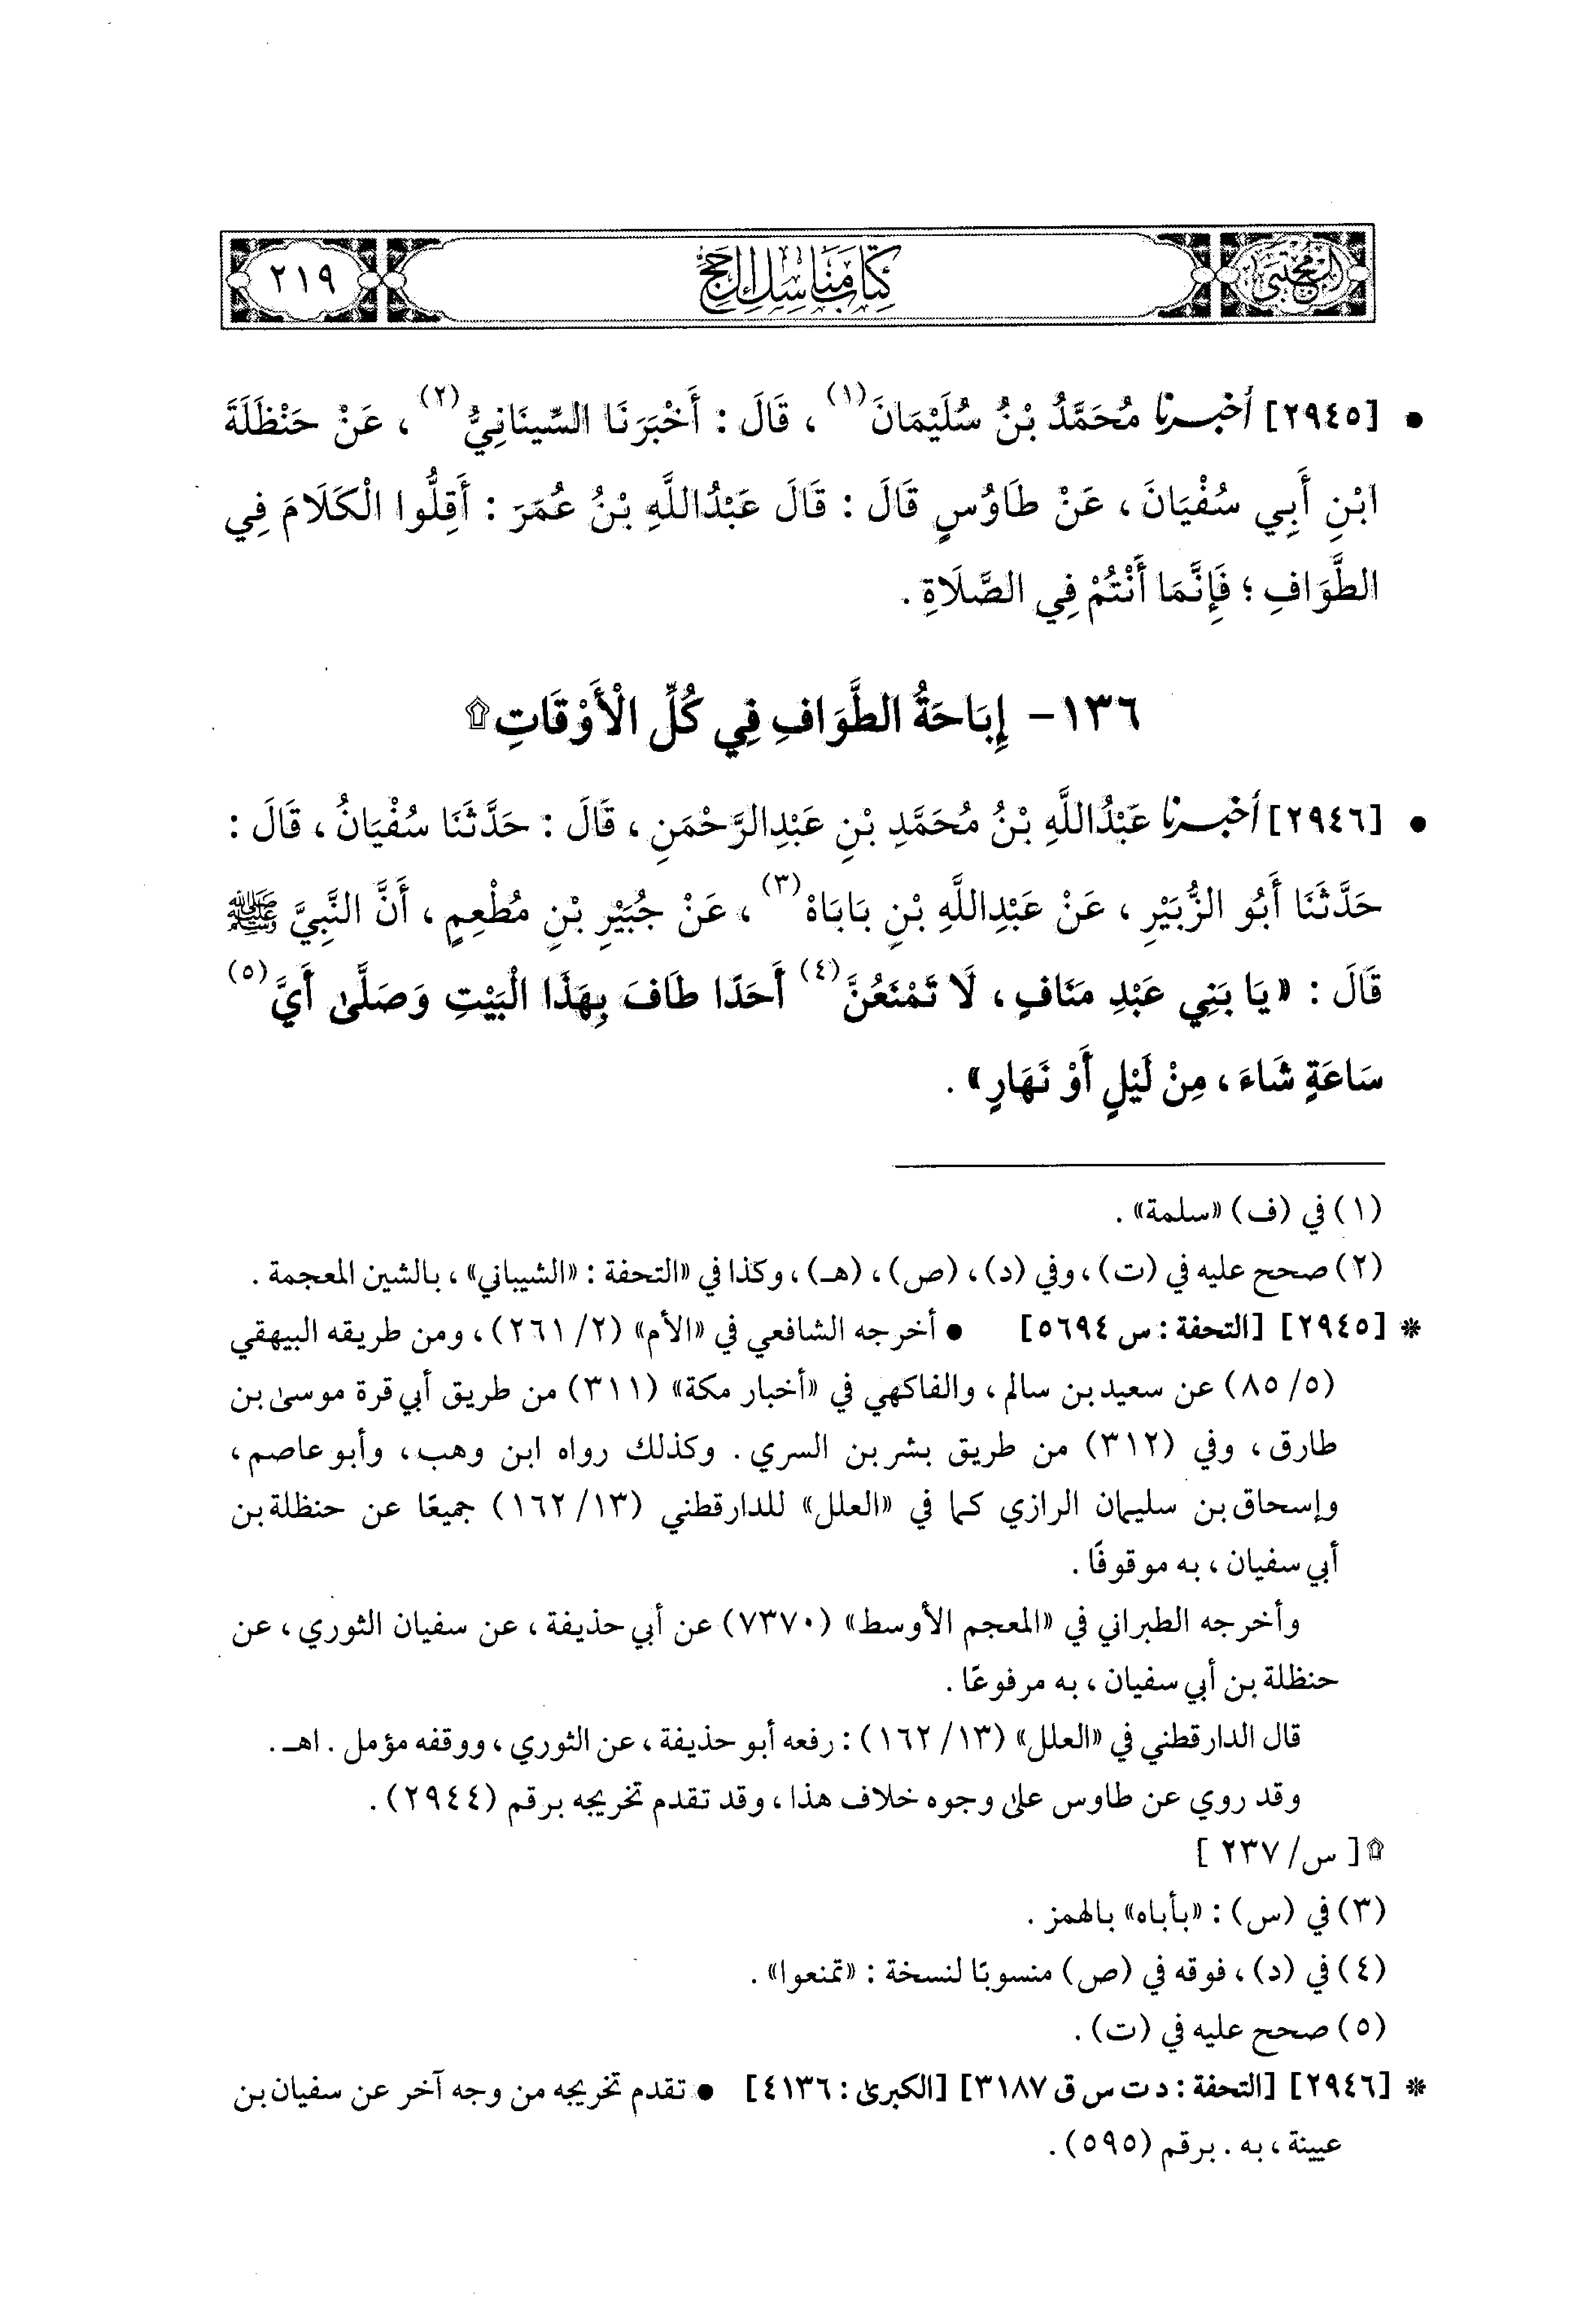 المجتبى
كتاب مناسك الحج
٢١٩
• [٢٩٤٥] أخبرنا مُحَمَّدُ بْنُ سُلَيْمَانَ(١)، قَالَ : أَخْبَرَنَا السِّينَانِيُّ(٢)، عَنْ حَنْظَلَةَ
ابْنِ أَبِي سُفْيَانَ، عَنْ طَاوُسٍ قَالَ : قَالَ عَبْدُاللَّهِ بْنُ عُمَرَ : أَقِلُّوا الْكَلَامَ فِي
الطَّوَافِ ؛ فَإِنَّمَا أَنْتُمْ فِي الصَّلَاةِ .
١٣٦- إِبَاحَةُ الطَّوَافِ فِي كُلِّ الْأَوْقَاتِ۩
• [٢٩٤٦] أخبرنا عَبْدُاللَّهِ بْنُ مُحَمَّدِ بْنِ عَبْدِالرَّحْمَنِ، قَالَ : حَدَّثَنَا سُفْيَانُ، قَالَ :
حَدَّثَنَا أَبُو الزُّبَيْرِ، عَنْ عَبْدِاللَّهِ بْنِ بَابَاهْ(٣)، عَنْ جُبَيْرِ بْنِ مُطْعِمٍ، أَنَّ النَّبِيَّ ﷺ
قَالَ : «يَا بَنِي عَبْدِ مَنَافٍ، لَا تَمْنَعُنَّ(٤) أَحَدًا طَافَ بِهَذَا الْبَيْتِ وَصَلَّى أَيَّ(٥)
سَاعَةٍ شَاءَ، مِنْ لَيْلٍ أَوْ نَهَارٍ» .
(١) في (ف) «سلمة» .
(٢) صحح عليه في (ت)، وفي (د)، (ص)، (هـ)، وكذا في «التحفة : «الشيباني»، بالشين المعجمة .
* [٢٩٤٥] [التحفة : س ٥٦٩٤] • أخرجه الشافعي في «الأم» (٢/ ٢٦١)، ومن طريقه البيهقي
(٥/ ٨٥) عن سعيد بن سالم، والفاكهي في «أخبار مكة» (٣١١) من طريق أبي قرة موسى بن
طارق، وفي (٣١٢) من طريق بشر بن السري . وكذلك رواه ابن وهب، وأبو عاصم،
وإسحاق بن سليمان الرازي كما في «العلل» للدارقطني (١٣/ ١٦٢) جميعًا عن حنظلة بن
أبي سفيان، به موقوفًا .
وأخرجه الطبراني في «المعجم الأوسط» (٧٣٧٠) عن أبي حذيفة، عن سفيان الثوري، عن
حنظلة بن أبي سفيان، به مرفوعًا .
قال الدارقطني في «العلل» (١٣/ ١٦٢) : رفعه أبو حذيفة، عن الثوري، ووقفه مؤمل . اهـ .
وقد روي عن طاوس على وجوه خلاف هذا، وقد تقدم تخريجه برقم (٢٩٤٤) .
۩ [ س/ ٢٣٧ ]
(٣) في (س) : «بأباه» بالهمز .
(٤) في (د)، فوقه في (ص) منسوبًا لنسخة : «تمنعوا» .
(٥) صحح عليه في (ت) .
* [٢٩٤٦] [التحفة : د ت س ق ٣١٨٧] [الكبرى : ٤١٣٦] • تقدم تخريجه من وجه آخر عن سفيان بن
عيينة، به . برقم (٥٩٥) .